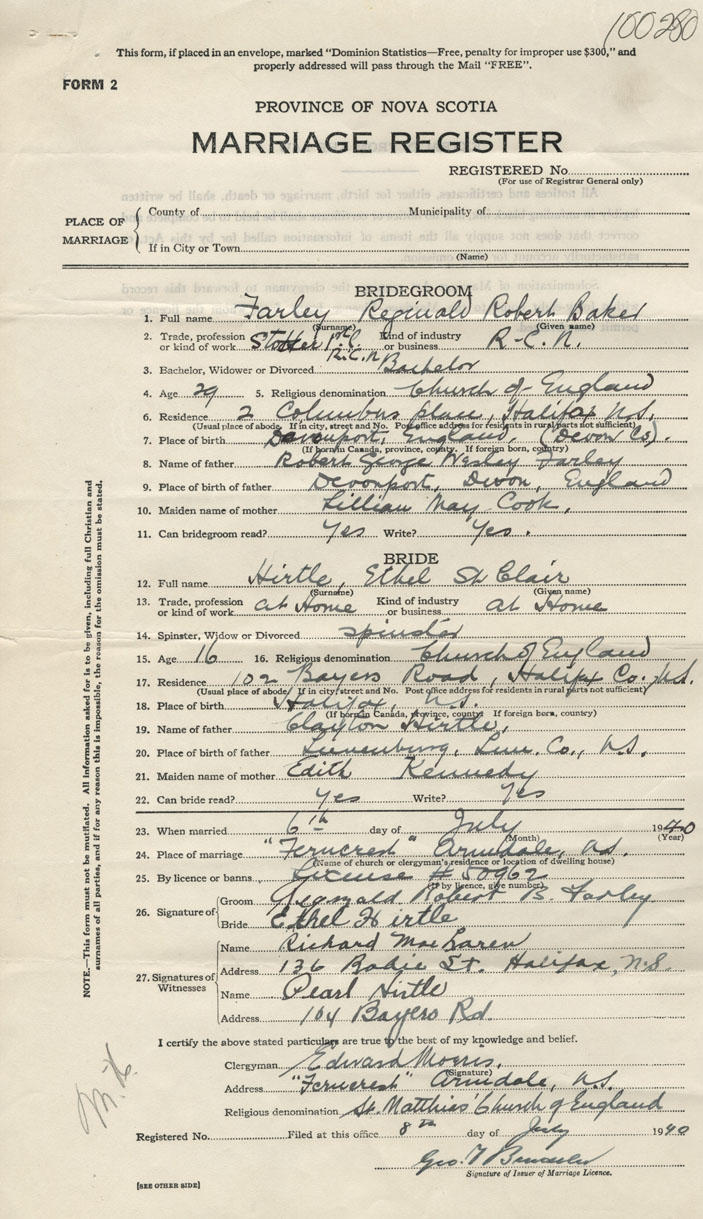 100280
This form, if placed in an envelope, marked "Dominion Statistics—Free, penalty for improper use $300," and
properly addressed will pass through the Mail "FREE".
FORM 2
PROVINCE OF NOVA SCOTIA
MARRIAGE REGISTER
REGISTERED No.
(For use of Registrar General only)
PLACE OF MARRIAGE
County of Municipality of
If in City or Town
(Name)
BRIDEGROOM
1. Full name Farley Reginald Robert Baker
(Surname) (Given name)
2. Trade, profession or kind of work Stoker 1st C. R.C.N. Kind of industry or business R.C.N.
3. Bachelor, Widower or Divorced Bachelor
4. Age 29 5. Religious denomination Church of England
6. Residence 2 Columbus place, Halifax N.S.
(Usual place of abode. If in city, street and No. Post office address for residents in rural parts not sufficient)
7. Place of birth Devonport, England, (Devon Co).
(If born in Canada, province, county. If foreign born, country)
8. Name of father Robert George Wesley Farley
9. Place of birth of father Devonport, Devon, England
10. Maiden name of mother Lillian May Cook.
11. Can bridegroom read? Yes Write? Yes.
BRIDE
12. Full name Hirtle, Ethel St Clair
(Surname) (Given name)
13. Trade, profession or kind of work at Home Kind of industry or business at Home
14. Spinster, Widow or Divorced spinster
15. Age 16 16. Religious denomination Church of England
17. Residence 102 Bayers Road, Halifax Co. N.S.
(Usual place of abode. If in city, street and No. Post office address for residents in rural parts not sufficient)
18. Place of birth Halifax, N.S.
(If born in Canada, province, county. If foreign born, country)
19. Name of father Clayton Hirtle,
20. Place of birth of father Lunenburg, Lun. Co., N.S.
21. Maiden name of mother Edith Kennedy
22. Can bride read? Yes Write? Yes
23. When married 6th day of July 1940
(Month) (Year)
24. Place of marriage "Ferncrest" Armdale, N.S.
(Name of church or clergyman's residence or location of dwelling house)
25. By licence or banns License # 50962
(If by licence, give number)
26. Signature of
Groom Reginald Robert B. Farley
Bride Ethel Hirtle
27. Signatures of Witnesses
Name Richard MacLaren
Address 136 Robie St. Halifax, N.S.
Name Pearl Hirtle
Address 104 Bayers Rd.
I certify the above stated particulars are true to the best of my knowledge and belief.
Clergyman Edward Morris,
(Signature)
Address "Ferncrest" Armdale, N.S.
Religious denomination St. Matthias' Church of England
Registered No. Filed at this office 8th day of July 1940
Geo. T
Signature of Issuer of Marriage Licence.
[SEE OTHER SIDE]
NOTE.—This form must not be mutilated. All information asked for is to be given, including full Christian and
surnames of all parties, and if for any reason this is impossible, the reason for the omission must be stated.